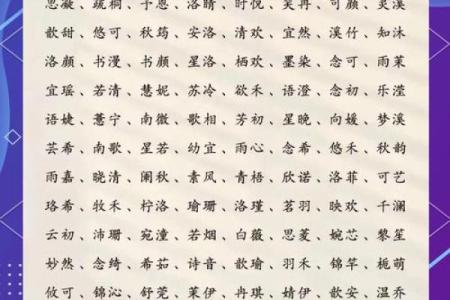 思凝、疏桐、予恩、洛晴、时悦、笑冉、可颜、灵溪
歆甜、悠可、秋筠、安洛、清欢、宜然、溪竹、知沐
洛颜、书漫、书颜、星洛、栖欢、墨染、念可、雨茉
宜瑶、若清、慧妮、苏冷、欲禾、语澄、念初、乐滢
语婕、薏宁、南微、歌相、芳初、星晚、向媛、梦溪
芸希、南歌、星若、幼宜、雨心、念希、悠禾、秋韵
雨嘉、晓清、阑秋、素风、青梧、欣诺、洛菲、可艺
珞希、牧禾、柠洛、瑜珊、洛瑾、茗羽、映欢、千澜
云初、沛珊、宛潼、若烟、白薇、思菱、婉芯、黎笙
妙然、念绮、希茹、诗音、歆瑜、羽禾、锦芊、栀萌
攸可、锦沁、舒莞、茉伊、冉琪、婧伊、歆安、温乔